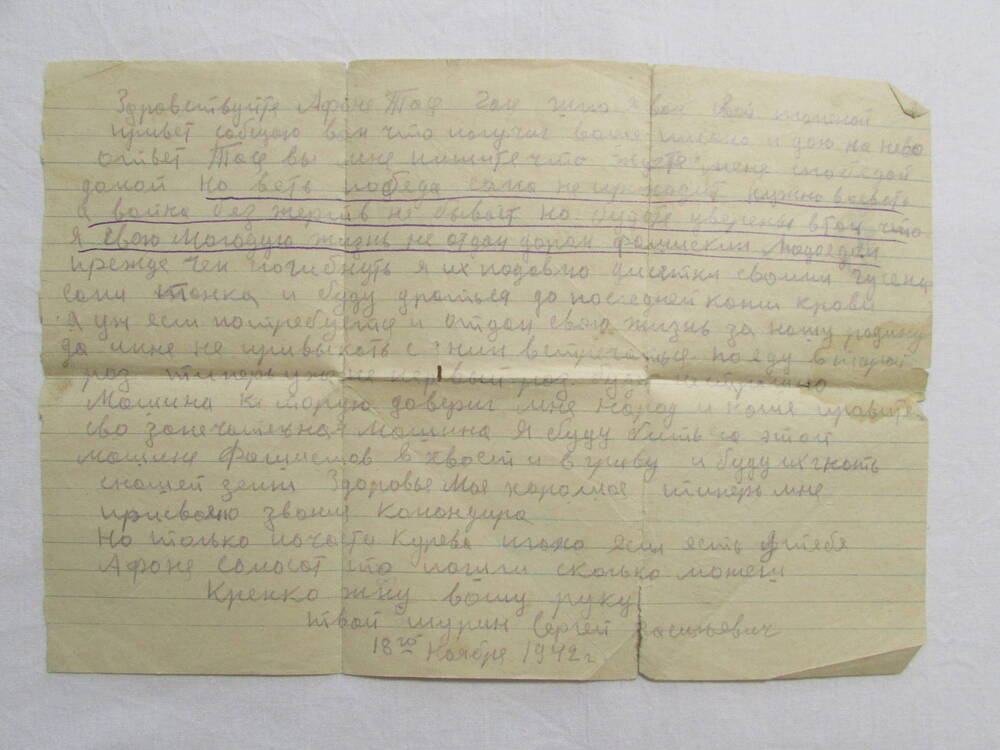 Здравствуйте Афоне Тося шлю я вам свой пламеной
привет собщаю вам что получил ваше писмо и даю на нево
ответ Тося вы мне пишите что ждете меня спобедой
домой но веть победа сама не приходит нужно воевать
а война без жертв не бывает но будьте уверены втом что
я свою молодую жизнь не отдам даром фашиским людоедам
прежде чем погибнуть я их подавлю дисятки своими гусени
сами танка и буду драться до последней капли крови
я уж если потребуется и отдам свою жизнь за нашу родину
да мне не привыкать с ним встречаться поеду вторай
раз типерь уже не первый раз буду
машина каторую доверил мне народ и наше правите
сво замечательная машина я буду бить на этой
машине фашистов в хвост и в гриву и буду их гнать
снашей земли Здоровье мое харошае типерь мне
присвоено звание командира
но только почасти курева плохо если есть у тебя
Афоне самосат то пошли сколько можеш
Крепко жму вашу руку
твой шурин Сергей Васильевич
18го Ноября 1942 г